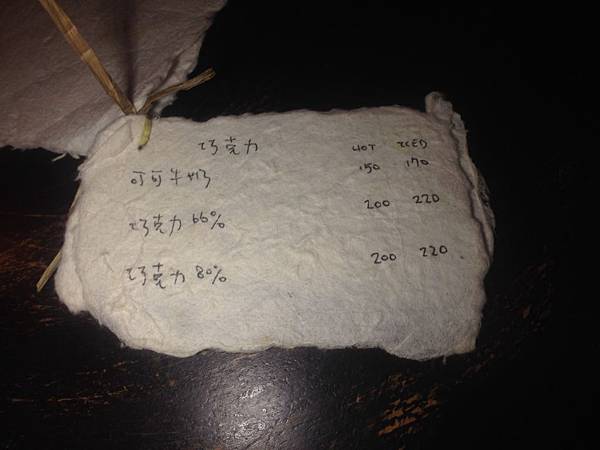 巧克力 HOT ICED
可可牛奶 150 170
巧克力 66% 200 220
巧克力 80% 200 220